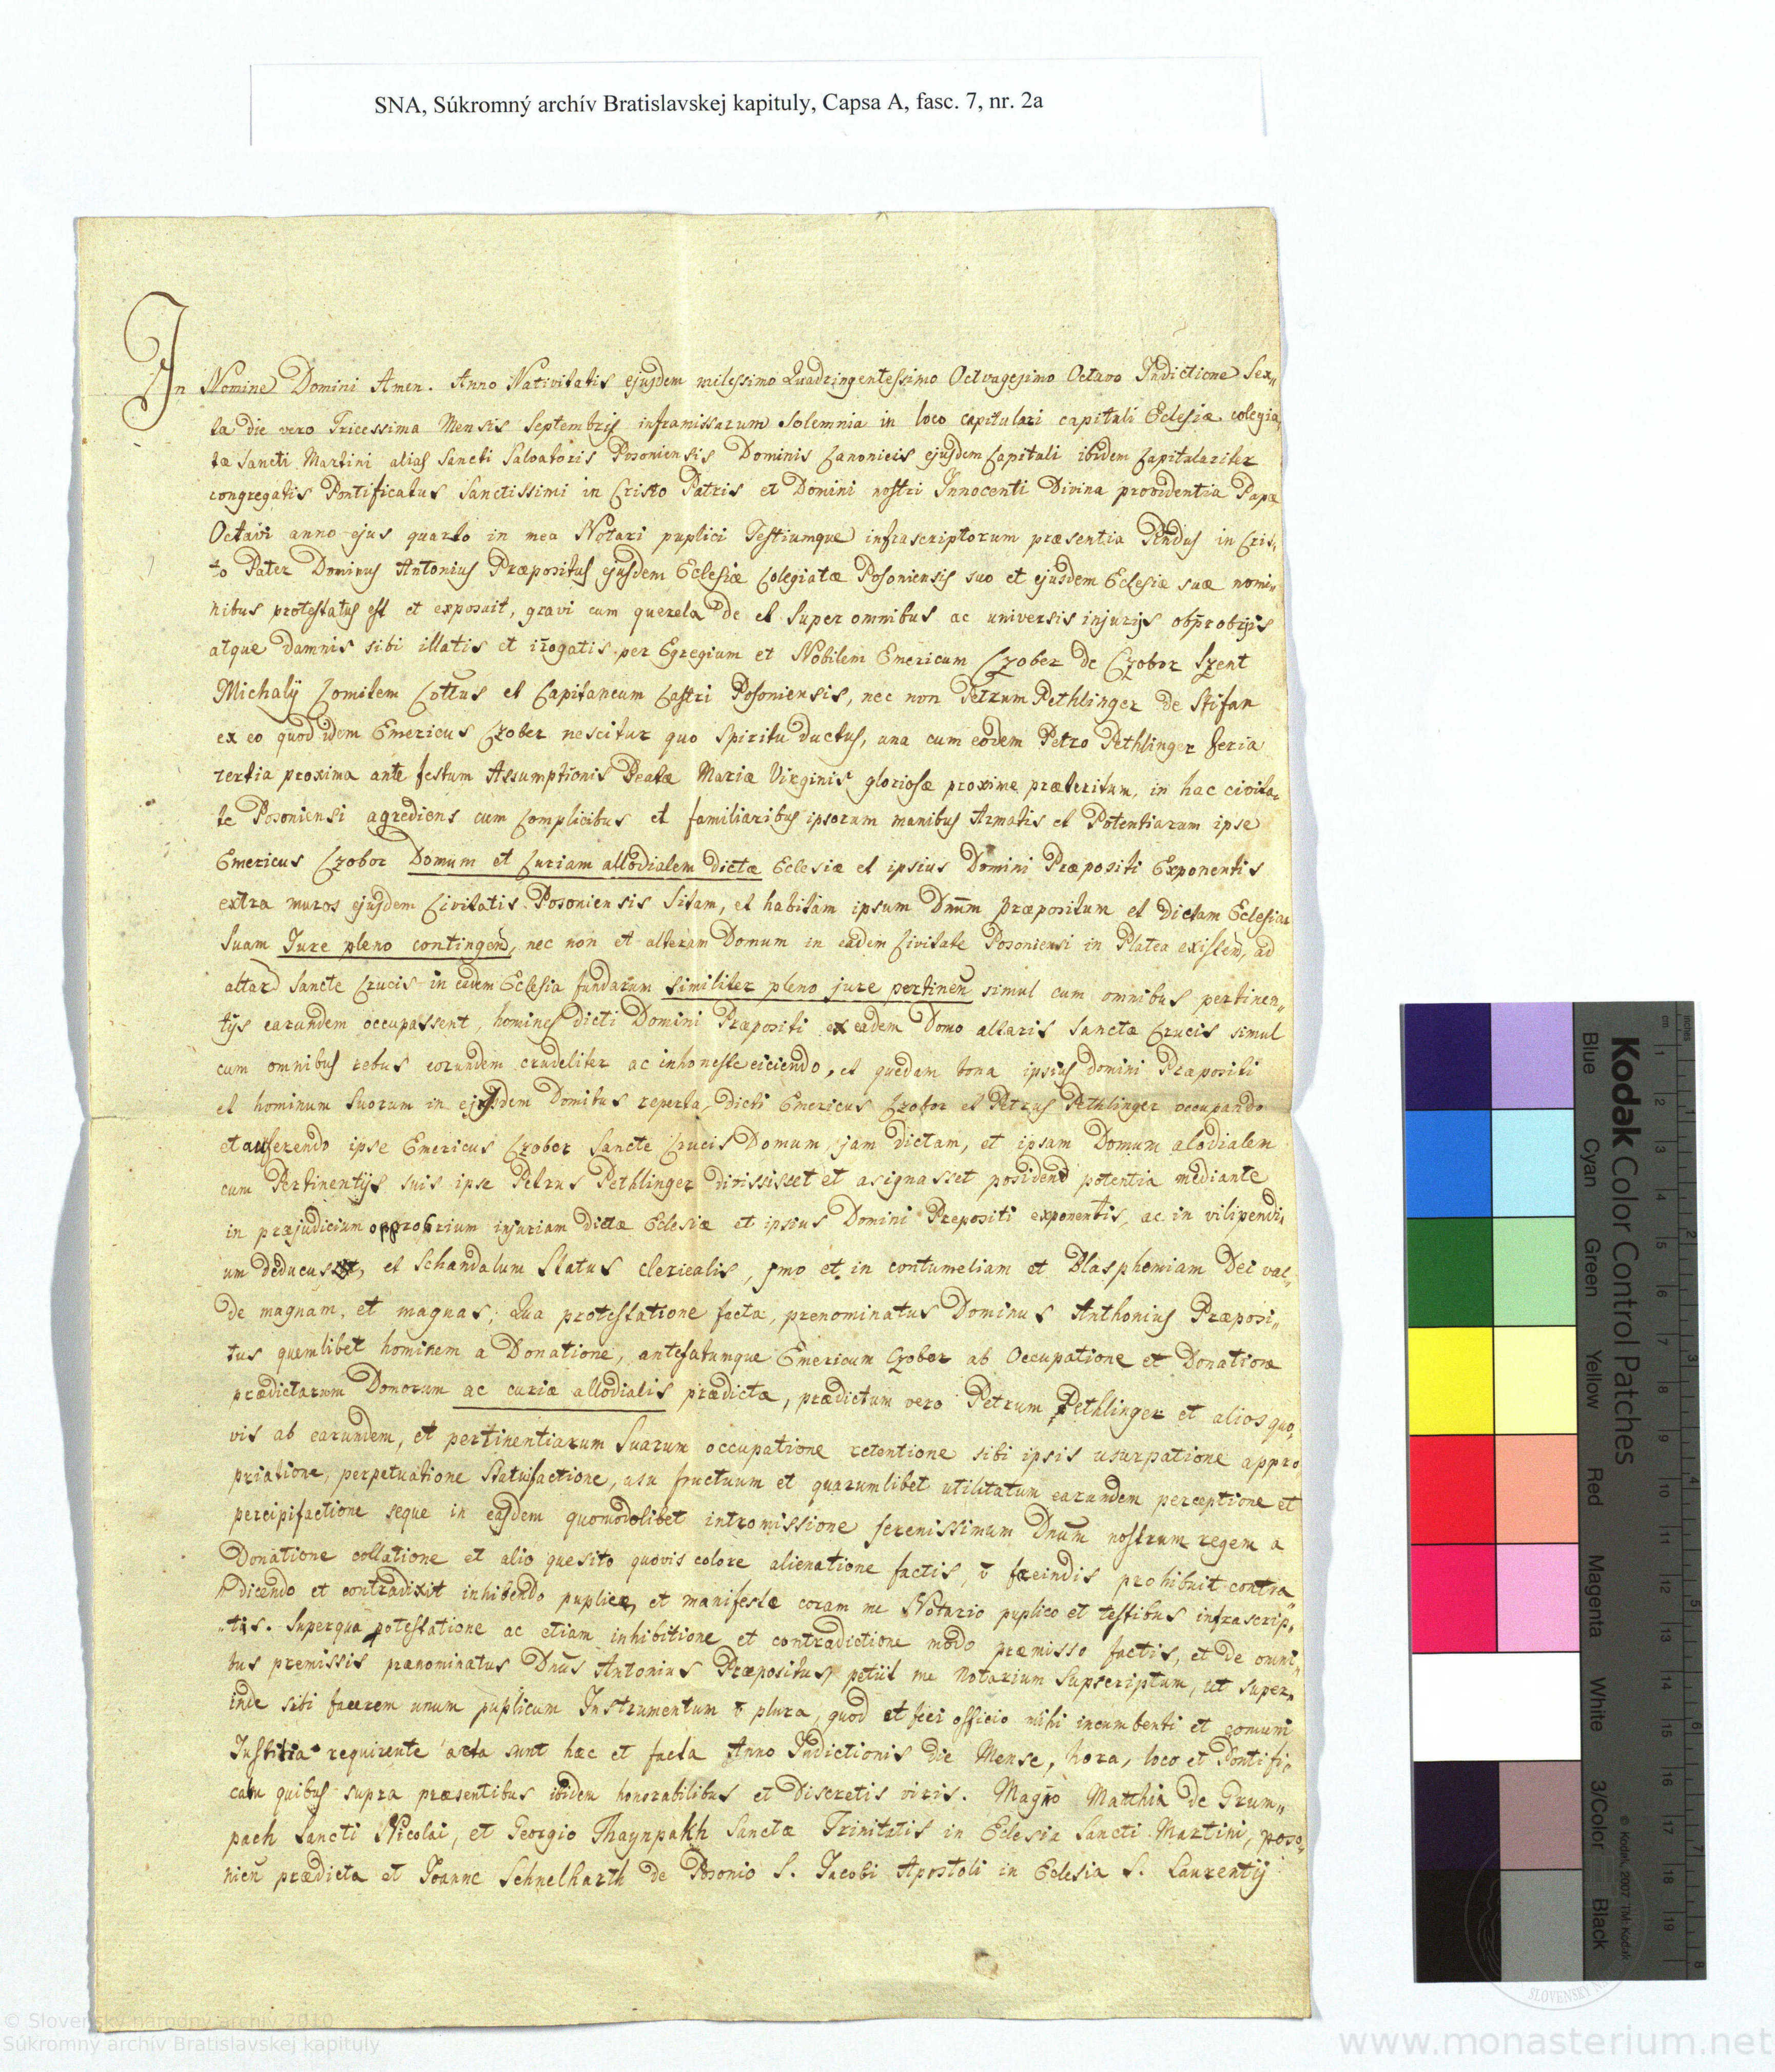 SNA, Súkromný archív Bratislavskej kapituly, Capsa A, fasc. 7, nr. 2a
In Nomine Domini Amen. Anno Nativitatis ejusdem milessimo Quadringentessimo Octvagesimo Octavo Indictione Sex„
ta die vero Tricessima Mensis Septembris inframissarum Solemnia in loco capitulari capituli Eclesiæ colegia
tæ Sancti Martini alias Sancti Salvatoris Posoniensis Dominis Canonicis ejusdem Capituli ibidem Capitulariter
congregatis Pontificatus Sanctissimi in Cristo Patris et Domini nostri Innocenti Divina providentia Papæ
Octavi anno ejus quarto in mea Notari puplici Testiumque infrascriptorum præsentia Rndus in Cris„
to Pater Dominus Antonius Præpositus ejusdem Eclesiæ Colegiatæ Posoniensis suo et ejusdem Eclesiæ suæ nomi„
nibus protestatus est et exposuit, gravi cum querela de et super omnibus ac universis injurijs obprobrijs
atque Damnis sibi illatis et irogatis per Egregium et Nobilem Emericum Czober de Czobor Szent
Michalÿ Comitem Cottus et Capitaneum Castri Posoniensis, nec non Petrum Pethlinger de Stifan
ex eo quod idem Emericus Czober nescitur quo Spiritu ductus, una cum eodem Petro Pethlinger feria
tertia proxima ante festum Assumptionis Beatæ Mariæ Virginis gloriosæ proxime præteritum, in hac civita„
te Posoniensi agrediens cum Complicibus et familiaribus ipsorum manibus Armatis et Potentiarum ipse
Emericus Czobor Domum et Curiam allodialem dictæ Eclesiæ et ipsius Domini Præpositi Exponentis
extra muros ejusdem Civitatis Posoniensis Sitam, et habitam ipsum Dnum præpositum et dictam Eclesiam
Suam Jure pleno contingen, nec non et alteram Domum in eadem Civitate Posoniensi in Platea existen, ad
altare Sancte Crucis in eadem Eclesia fundatum similiter pleno jure pertinen simul cum omnibus pertinen„
tijs earundem occupassent, homines dicti Domini Præpositi ex eadem Domo altaris Sanctæ Crucis simul
cum omnibus rebus eorundem crudeliter ac inhoneste eiciendo, et quedam bona ipsius Domini Præpositi
et hominum Suorum in ejusdem Domibus reperta, dicti Emericus Czobor et Petrus Pethlinger occupando
et auferendo ipse Emericus Czobor Sancte Crucis Domum jam dictam, et ipsam Domum alodialem
cum Pertinentijs suis ipse Petrus Pethlinger divississet et asignasset posidend potentia mediante
in præjudicium opprobrium injuriam dictæ Eclesiæ et ipsius Domini Prepositi exponentis, ac in vilipendi„
um et Schandalum Status clericalis, jmo et in contumeliam et Blasphemiam Dei val„
de magnam, et magnas; Qua protestatione facta, prenominatus Dominus Anthonius Præposi„
tus quemlibet hominem a Donatione, antefatumque Emericum Czober ab Occupatione et Donatione
prædictarum Domorum ac curiæ allodialis prædictæ, prædictum vero Petrum Pethlinger et alios quo„
vis ab earundem, et pertinentiarum Suarum occupatione retentione sibi ipsis usurpatione appro
priatione, perpetuatione Statuifactione, usu fructuum et quarumlibet utilitatum earundem perceptione et
percipifactione seque in easdem quomodolibet intromissione serenissimum Dnum nostrum regem a
Donatione collatione et alio quesito quovis colore alienatione factis, v faciendis prohibuit contra„
dicendo et contradixit inhibendo puplice, et manifeste coram me Notario puplico et testibus infrascrip„
„tis. Superqua potestatione ac etiam inhibitione et contradictione modo præmisso factis, et de omni„
bus premissis prænominatus Dnus Antonius Præpositus, petiit me Notarium Supscriptum, ut super„
inde sibi facerem unum puplicum Instrumentum v plura, quod et feci officio mihi incumbenti et comuni
Justitia requirente acta sunt hæc et facta Anno Indictionis Die Mense, hora, loco et Pontifi„
catu quibus supra præsentibus ibidem honorabilibus et Discretis viris. Magro Matthia de Grum„
pach Sancti Nicolai, et Georgio Thaynpakh Sanctæ Trinitatis in Eclesia Sancti Martini, poso„
nien prædicta et Joanne Schnelharth de Posonio S. Jacobi Apostoli in Eclesia S. Laurentij
Kodak Color Control Patches
Blue Cyan Green Yellow Red Magenta White 3/Color Black
© Kodak, 2007 TM: Kodak
cm 1 2 3 4 5 6 7 8 9 10 11 12 13 14 15 16 17 18 19
inches 1 2 3 4 5 6 7 8
© Slovenský národný archív 2010
Súkromný archív Bratislavskej kapituly
www.monasterium.net